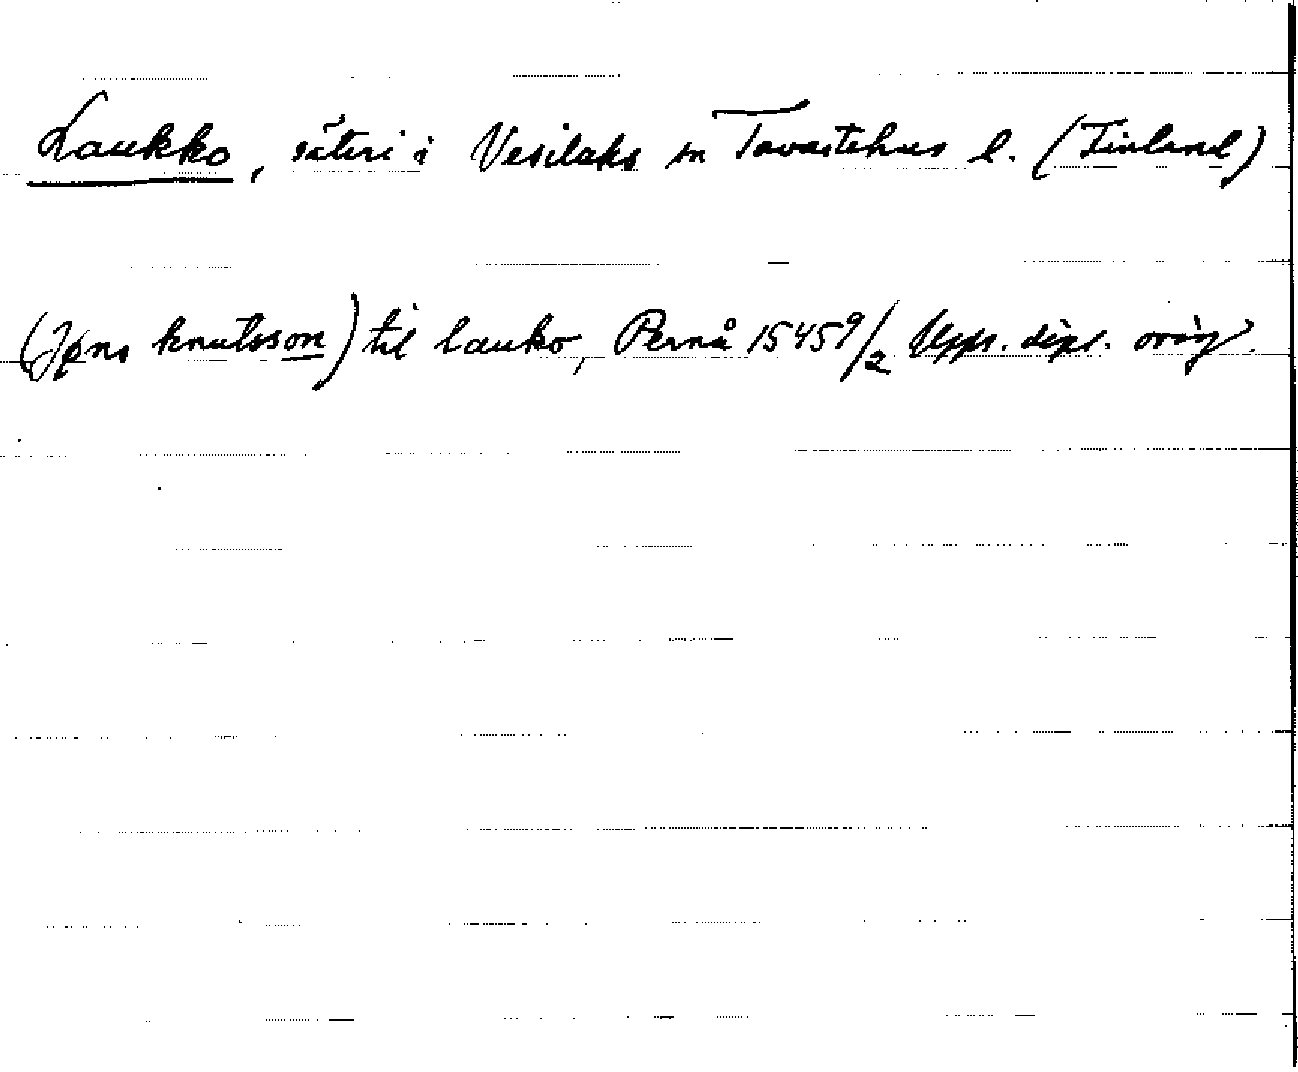 Laukko, säteri i Vesilaks sn Tavastehus l. (Finland)
(Jøns knutsson) til lauko, Pernå 1545 9/2 Upps. dipl. orig.